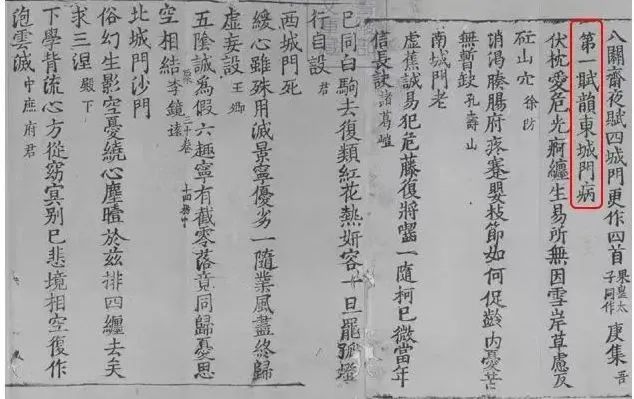 八關齋夜賦四城門更作四首 梁皇太子同作 庾集 吾
第一賦韻東城門病
伏枕愛危光痾纏生易所無因雪岸草慮反
山穴 徐防
消渴腠腸府疼蹇嬰枝節如何促齡內憂苦
無暫缺 孔壽山
南城門老
虛蕉誠易犯危藤復將囓一隨柯已微當年
信長訣 諸葛嵦
已同白駒去復類紅花熱妍容一旦罷孤燈
行自設 君
西城門死
緩心雖殊用減景寧優劣一隨業風盡終歸
虛妄設 王卿
五陰誠爲假六趣寧有截零落竟同歸憂思
空相結 李鏡遠 三十卷 十四
北城門沙門
俗幻生影空憂繞心塵曀於茲排四纏去矣
求三涅 殿下
下學背流心方從窈冥別已悲境相空復作
泡雲滅 中庶府君